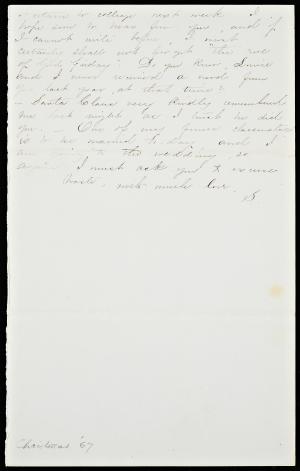 return to college next week. I
hope soon to hear from you, and if
I cannot write before, I most
certainly shall not forget "the eve
of Good Friday". Do you know,
that I never received a word from
you last year, at that time?
- Santa Claus very kindly remembered
me last night as I trust he did
you. - One of my former classmates
is to be married to-day and I
am going to the wedding, so
again I must ask you to excuse
haste, with much love.
S
Christmas '67